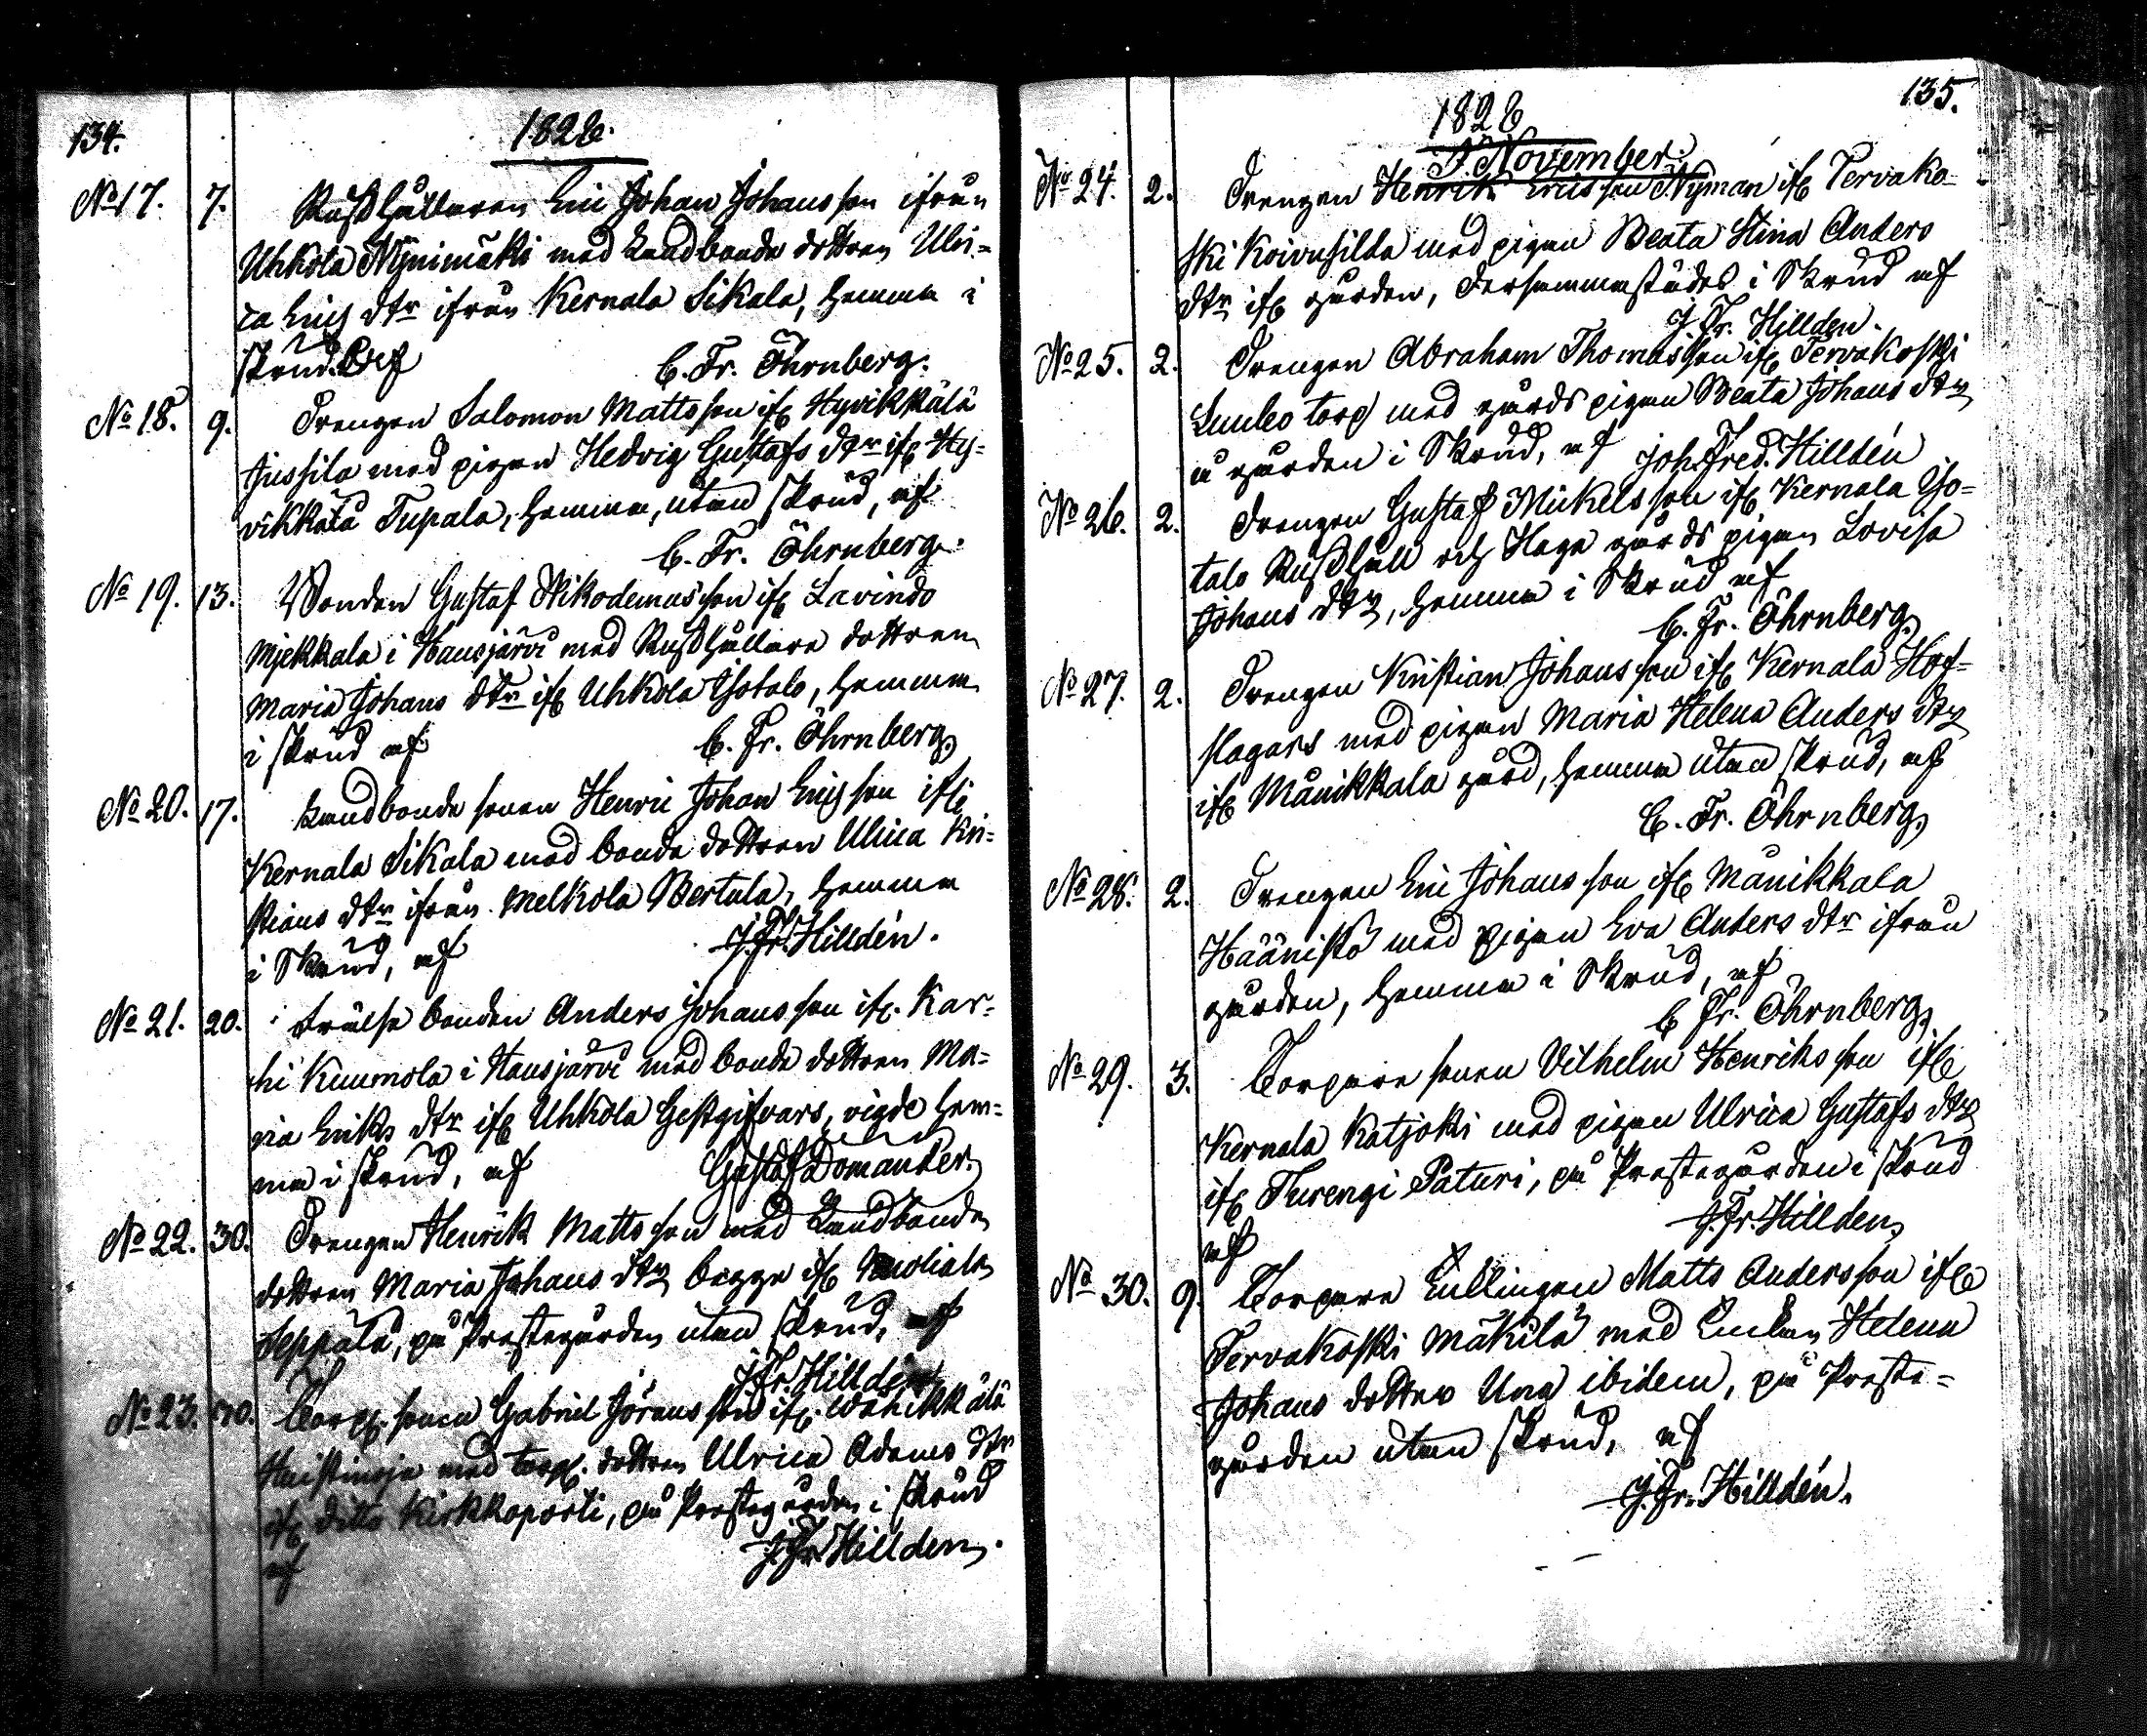 134.
1826.
No 17. 7. Rusthållaren Eric Johan Johansson ifrån
Uhkola Nynimäki med Landbonde dottren Ulri-
ca Erics dtr ifrån Kernala Sikala, hemma i
skrud. af
C. Fr. Öhrnberg.
No 18. 9. Drengen Salomon Mattsson ifr Hyvikkälä
Jussila med pigan Hedvig Gustafs dtr ifr Hy-
vikkälä Tupala, hemma, utan skrud, af
C. Fr. Öhrnberg.
No 19. 13. Bonden Gustaf Nikodemusson ifr Lavindo
Mjekkala i Hausjärvi med Rusthållare dottren
Maria Johans dtr ifr Uhkola Isotalo, hemma
i skrud af
C. Fr. Öhrnberg
No 20. 17. Landbonde sonen Henric Johan Ericsson ifr
Kernala Sikala med bonde dottren Ulrica Kri-
stians dtr ifrån Melkola Bertula, hemma
i Skrud, af
J. Fr. Hilldén.
No 21. 20. Frälse bonden Anders Johansson ifr. Kar-
hi Kuumola i Hausjärvi med bonde dottren Ma-
ria Eriks dtr ifr Uhkola Gestgifvars, vigde hem-
ma i skrud, af
Gustaf Domander.
No 22. 30. Drengen Henrik Mattsson med Landbonde
dottren Maria Johans dtr begge ifr
Seppälä, på Prestegården utan skrud, af
J. Fr. Hilldén
No 23. 30. Torp. sonen Gabriel Jöransson ifr.
med torp. dottren Ulrica Adams dtr
ifr ditto Kirkkoportti, på Prestegården i skrud
af
J. Fr. Hilldén.
135.
1826
I November.
No 24. 2. Drengen Henrik Ericsson Nyman ifr Tervako-
ski Koivusilda med pigan Beata Stina Anders
dtr ifr gården, dersammastädes i Skrud af
J. Fr. Hilldén.
No 25. 2. Drengen Abraham Thomasson ifr Tervakoski
torp med gårds pigan Beata Johans dtr
å gården i Skrud, af Joh. Fred. Hilldén
No 26. 2. Drengen Gustaf Mickelsson ifr Kernala Iso-
talo Rusthåll och Haga gårds pigan Lovisa
Johans dtr, hemma i Skrud af
C. Fr. Öhrnberg
No 27. 2. Drengen Kristian Johansson ifr Kernala Hof-
slagars med pigan Maria Helena Anders dtr
ifr Mänikkala gård, hemma utan skrud, af
C. Fr. Öhrnberg
No 28. 2. Drengen Eric Johansson ifr Mänikkala
Häänistö med pigan Eva Anders dtr ifrån
gården, hemma i Skrud, af
C Fr. Öhrnberg
No 29. 3. Torpare sonen Vilhelm Henriksson ifr
Kernala Katjoki med pigan Ulrica Gustafs dtr
ifr Turengi Paturi, på Prestegården i skrud
af
J. Fr. Hilldén
No 30. 9. Torpare Enklingen Matts Andersson ifr
Tervakoski Mäkilä med Enkan Helena
Johans dotter Una ibidem, på Preste-
gården utan skrud, af
J. Fr. Hilldén.